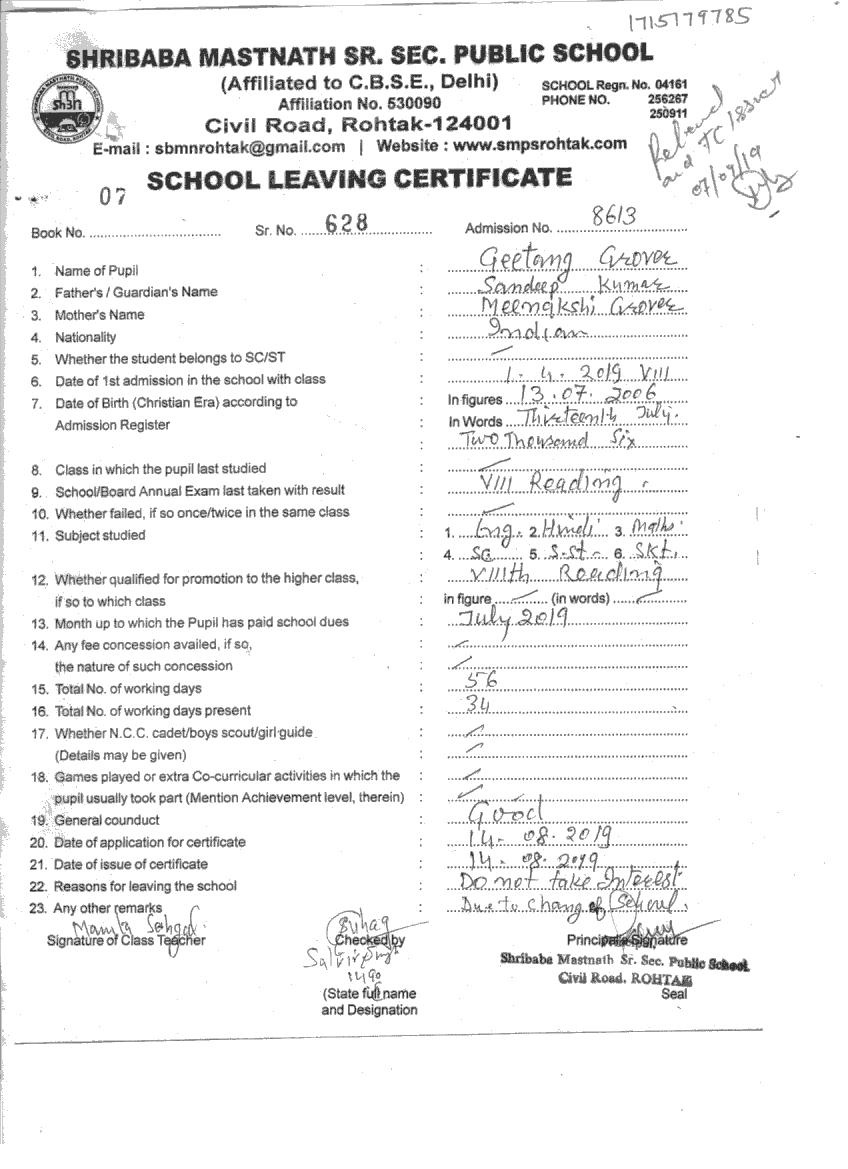 1715779785
SHRIBABA MASTNATH SR. SEC. PUBLIC SCHOOL
(Affiliated to C.B.S.E., Delhi) SCHOOL Regn. No. 04161
Affiliation No. 530090 PHONE NO. 256267
250911
Civil Road, Rohtak-124001
E-mail : sbmnrohtak@gmail.com | Website : www.smpsrohtak.com
Relieved
and TC Issued
07/09/19
SCHOOL LEAVING CERTIFICATE
Book No. 07 Sr. No. 628 Admission No. 8613
1. Name of Pupil : Geetang Grover
2. Father's / Guardian's Name : Sandeep Kumar
3. Mother's Name : Meenakshi Grover
4. Nationality : Indian
5. Whether the student belongs to SC/ST :
6. Date of 1st admission in the school with class : 1.4.2019 VIII
7. Date of Birth (Christian Era) according to : In figures 13.07.2006
Admission Register : In Words Thirteenth July.
: Two Thousand Six
8. Class in which the pupil last studied :
9. School/Board Annual Exam last taken with result : VIII Reading
10. Whether failed, if so once/twice in the same class :
11. Subject studied : 1. Eng. 2. Hindi 3. Maths
: 4. SC 5. S.St 6. Skt.
12. Whether qualified for promotion to the higher class, : VIIIth Reading
if so to which class : in figure (in words)
13. Month up to which the Pupil has paid school dues : July 2019
14. Any fee concession availed, if so, :
the nature of such concession :
15. Total No. of working days : 56
16. Total No. of working days present : 34
17. Whether N.C.C. cadet/boys scout/girl guide :
(Details may be given) :
18. Games played or extra Co-curricular activities in which the :
pupil usually took part (Mention Achievement level, therein) :
19. General counduct : Good
20. Date of application for certificate : 14.08.2019
21. Date of issue of certificate : 14.08.2019
22. Reasons for leaving the school : Do not take Interest
23. Any other remarks : Due to Chang of School.
Mamta Sehgal
Signature of Class Teacher
Suhag
Checked by
(State full name
and Designation
Principal's Signature
Shribaba Mastnath Sr. Sec. Public School
Civil Road, ROHTAK
Seal